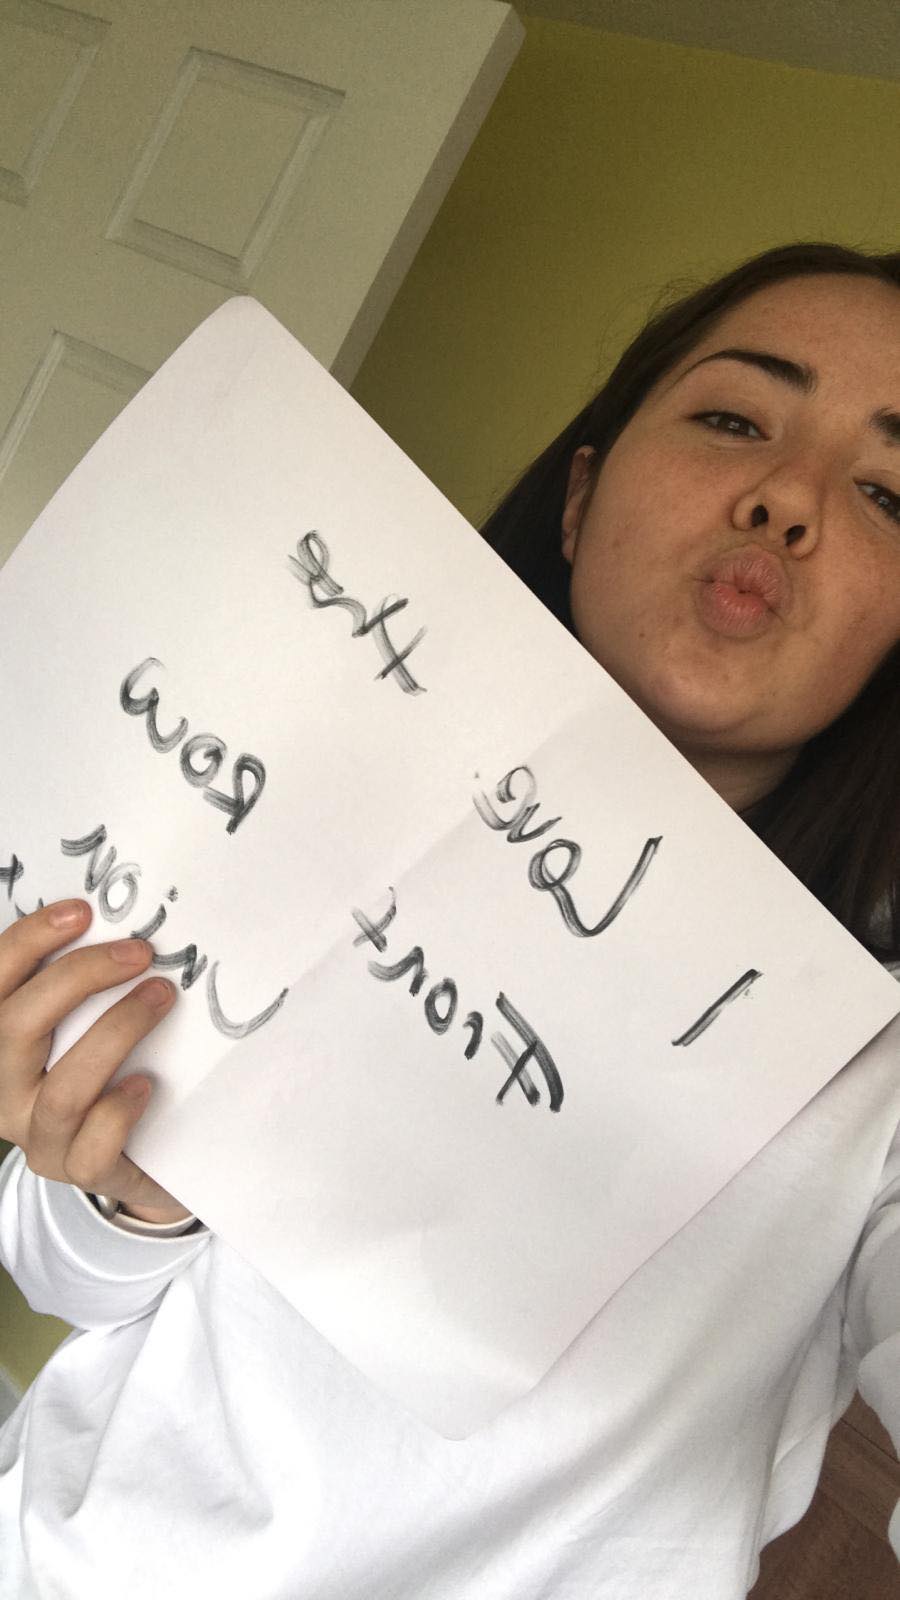 I Love the
Front Row
Union